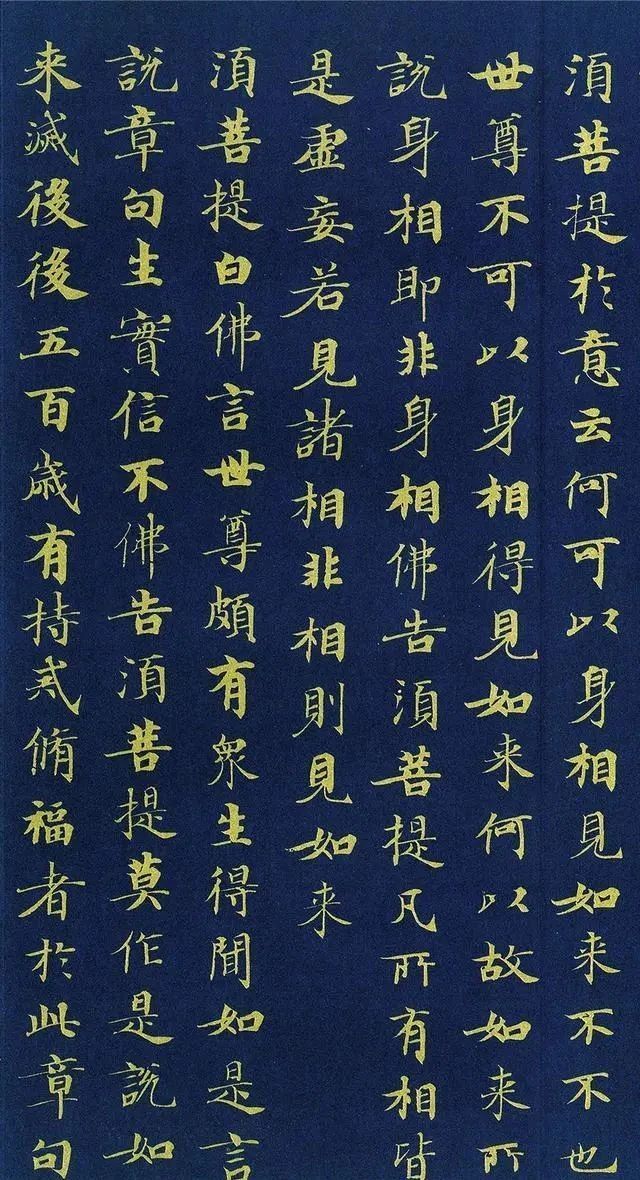 須菩提於意云何可以身相見如来不不也
世尊不可以身相得見如来何以故如来所
說身相即非身相佛告須菩提凡所有相皆
是虚妄若見諸相非相則見如来
須菩提白佛言世尊頗有衆生得聞如是言
說章句生實信不佛告須菩提莫作是說如
来滅後後五百歲有持戒脩福者於此章句